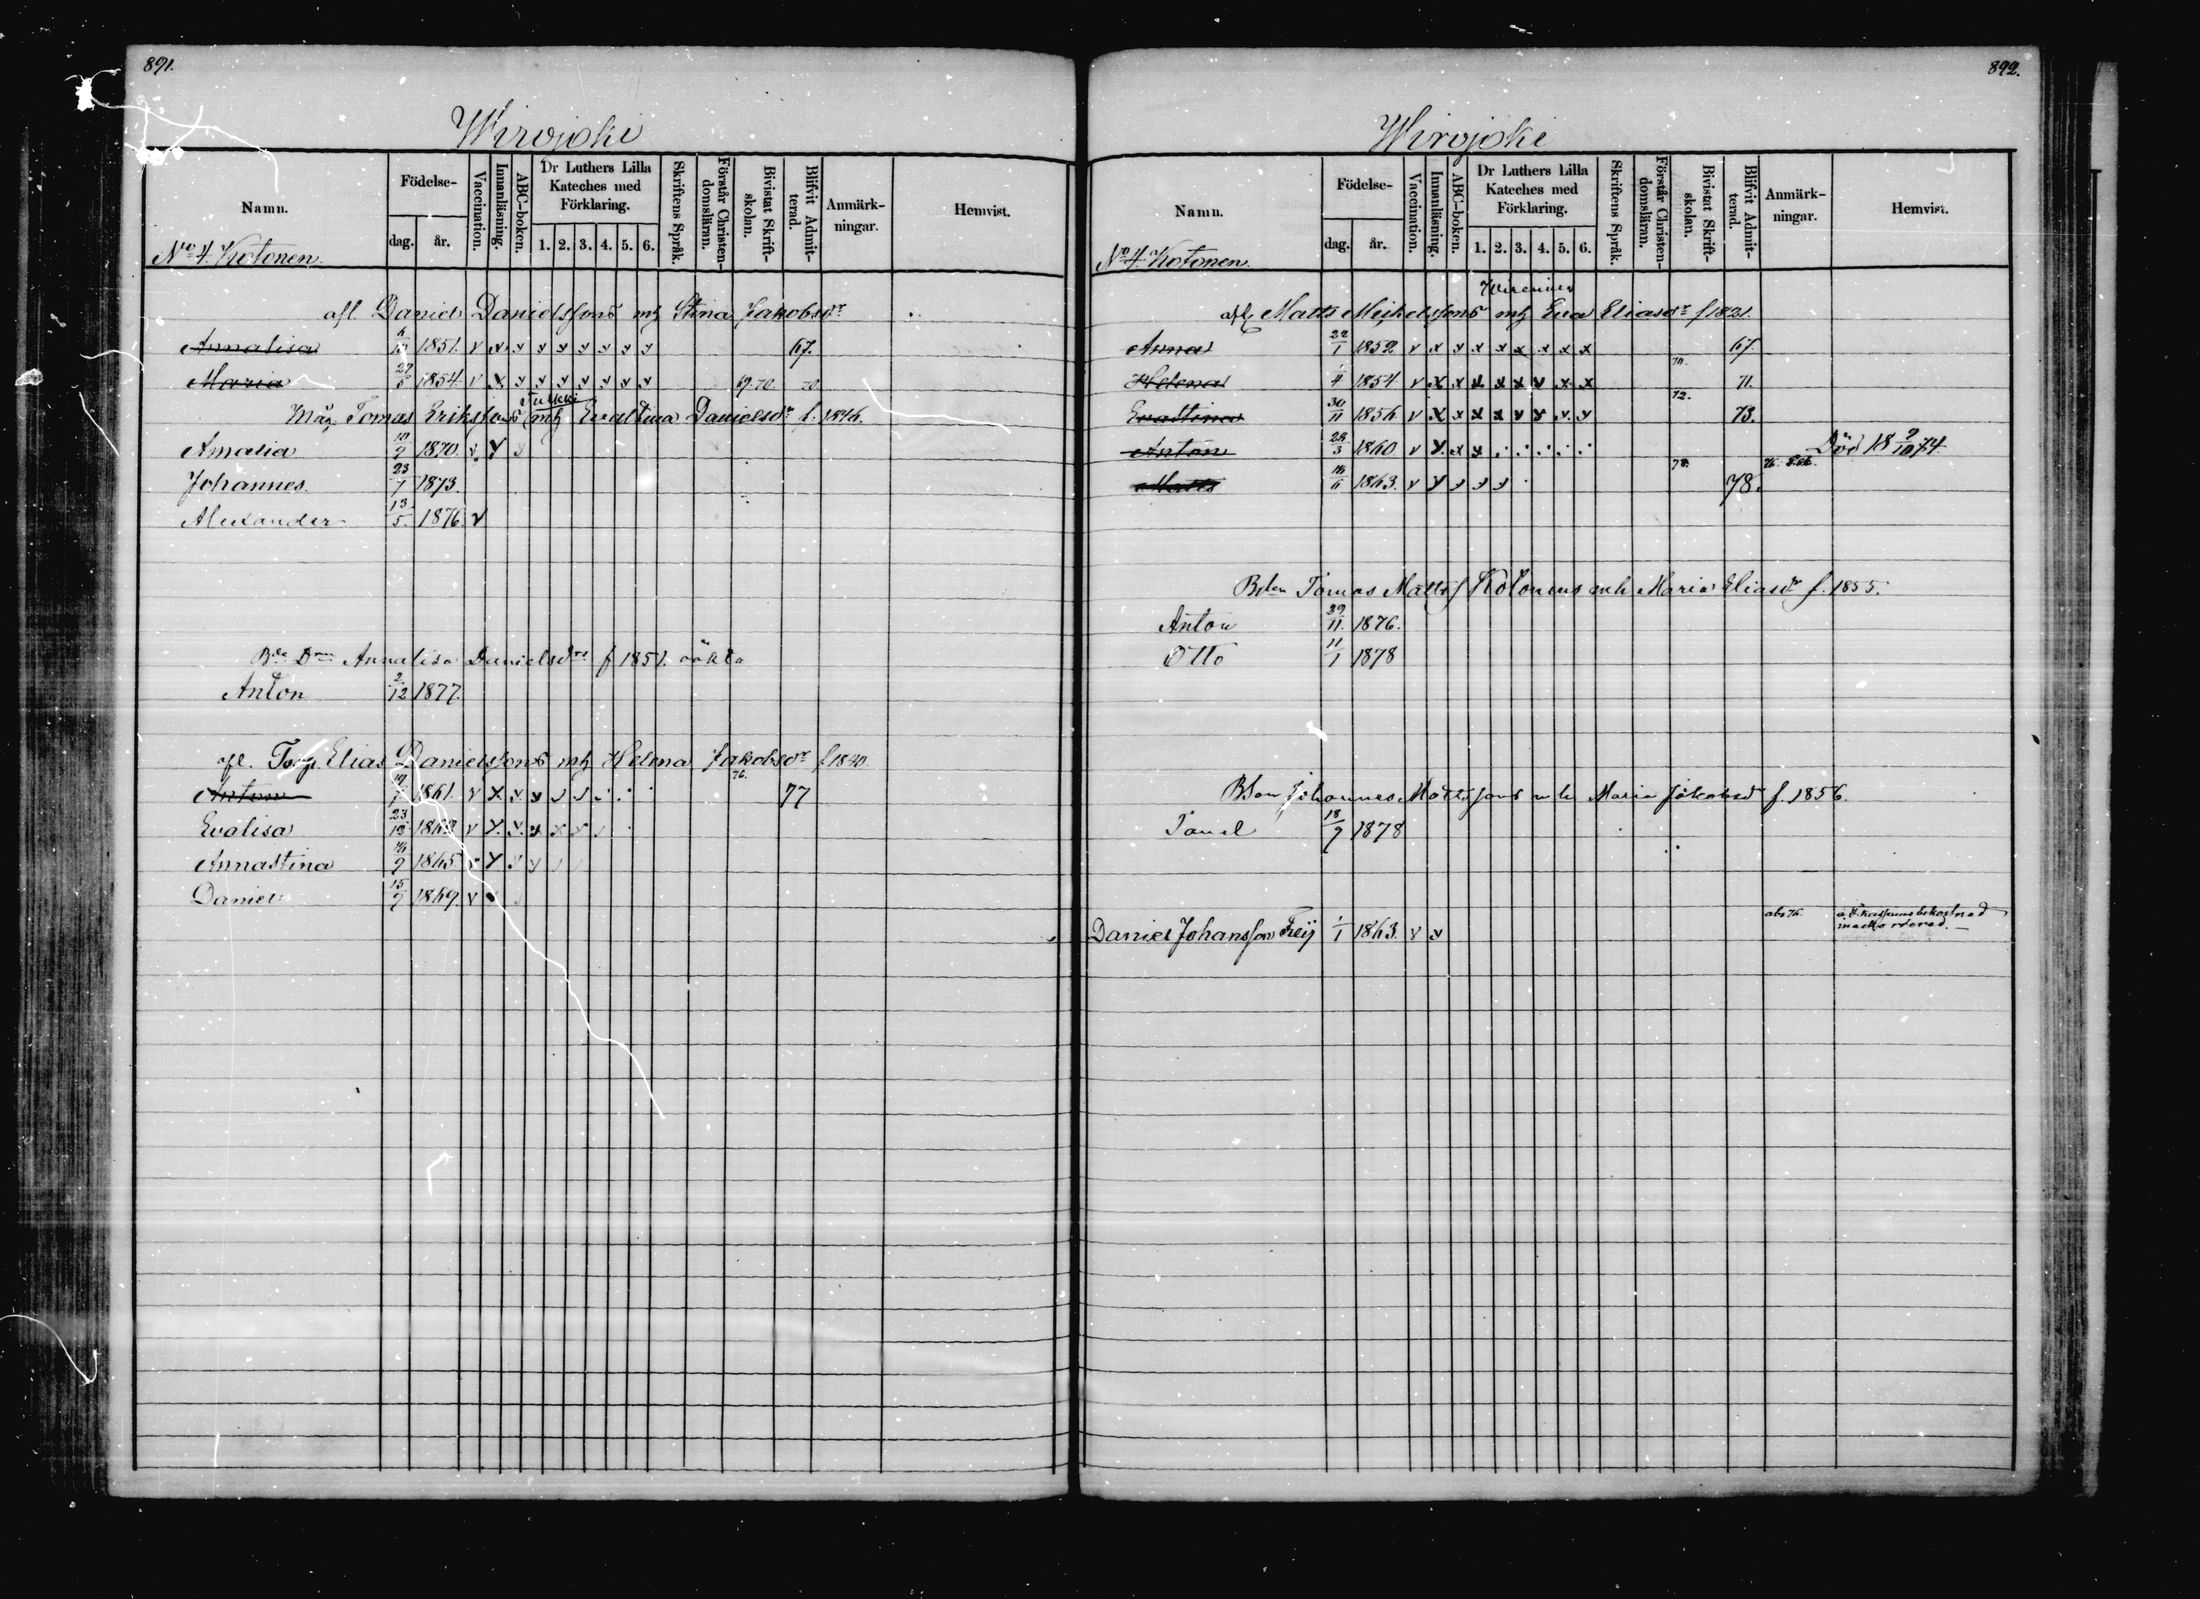 891.
Wirojoki
Namn.
Födelse-
dag. år.
Vaccination.
Innanläsning.
ABC-boken.
Dr Luthers Lilla
Kateches med
Förklaring.
1. 2. 3. 4. 5. 6.
Skriftens Språk.
Förstår Christen-
domsläran.
Bivistat Skrift-
skolan.
Blifvit Admit-
terad.
Anmärk-
ningar.
Hemvist.
No 4. Kotonen.
afl. Daniel Danielssons mh Stina Jakobsdr
Annalisa 6/10 1851. v x x x x x x x x 67.
Maria 27/5 1854. v x x x x x x x x 69.70. 70.
Tulkki
Måg Tomas Erikssons mh Evastina Danielsdr f. 1846.
Amalia 10/9 1870. v v
Johannes. 23/7 1873.
Alexander 13/5. 1876. v
Annalisa Danielsdrs f 1851. oäkta
Anton 2/12 1877.
afl. Elias Danielssons mh Helena Jakobsdr f 1840.
Anton 19/7 1861. 76. 77
Evalisa 23/12
Annastina 1865.
Daniel 15/9 1869. v
892.
Wirojoki
Namn.
Födelse-
dag. år.
Vaccination.
Innanläsning.
ABC-boken.
Dr Luthers Lilla
Kateches med
Förklaring.
1. 2. 3. 4. 5. 6.
Skriftens Språk.
Förstår Christen-
domsläran.
Bivistat Skrift-
skolan.
Blifvit Admit-
terad.
Anmärk-
ningar.
Hemvist.
No 4. Kotonen.
afl Matts Michelssons mh Eva Eliasdr f 1821.
Anna 22/1 1852 v x x x x x x x x 67
Helena 1/4 1854 v x x x x x x x x 70. 71.
Evastina 30/11 1856 v x x x x v x v v 72. 73.
Anton 22/3 1860 v x x x Död 18 9/10 74.
Matts 1863. v v 78. 78.
Tomas Matts Kotonens mh Maria Eliasdr f. 1855.
Anton 11. 1876.
Otto 11/1 1878
BSon Johannes Mattssons mh Maria Jakobsd f. 1856.
18/9 1878
Daniel Johansson Freij 1/1 1863. v v abs 76.